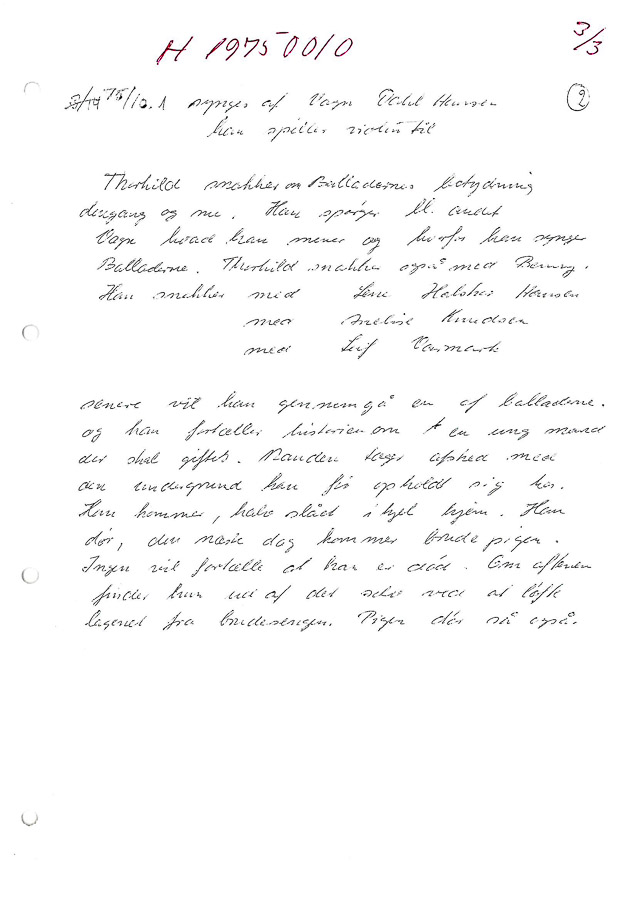 H 1975 0010
3/3
75/10.1 synges af Vagn Dahl Hansen
2
han spiller violin til
Thorkild snakker om Balladernes betydning
dengang og nu. Han spørger bl. andet
Vagn hvad han mener og hvorfor han synger
Balladerne. Thorkild snakker også med Benny.
Han snakker med Lene Halskov Hansen
med Anelise Knudsen
med Leif Varmark
senere vil han gennemgå en af balladerne.
og han fortæller historien om en ung mand
der skal giftes. Manden tager afsked med
den undergrund han før opholdt sig hos.
Han kommer, halv slået ihjel hjem. Han
dør, den næste dag kommer brude pigen.
Ingen vil fortælle at han er død. Om aftenen
finder hun ud af det selv ved at løfte
lagenet fra brudesengen. Pigen dør så også.